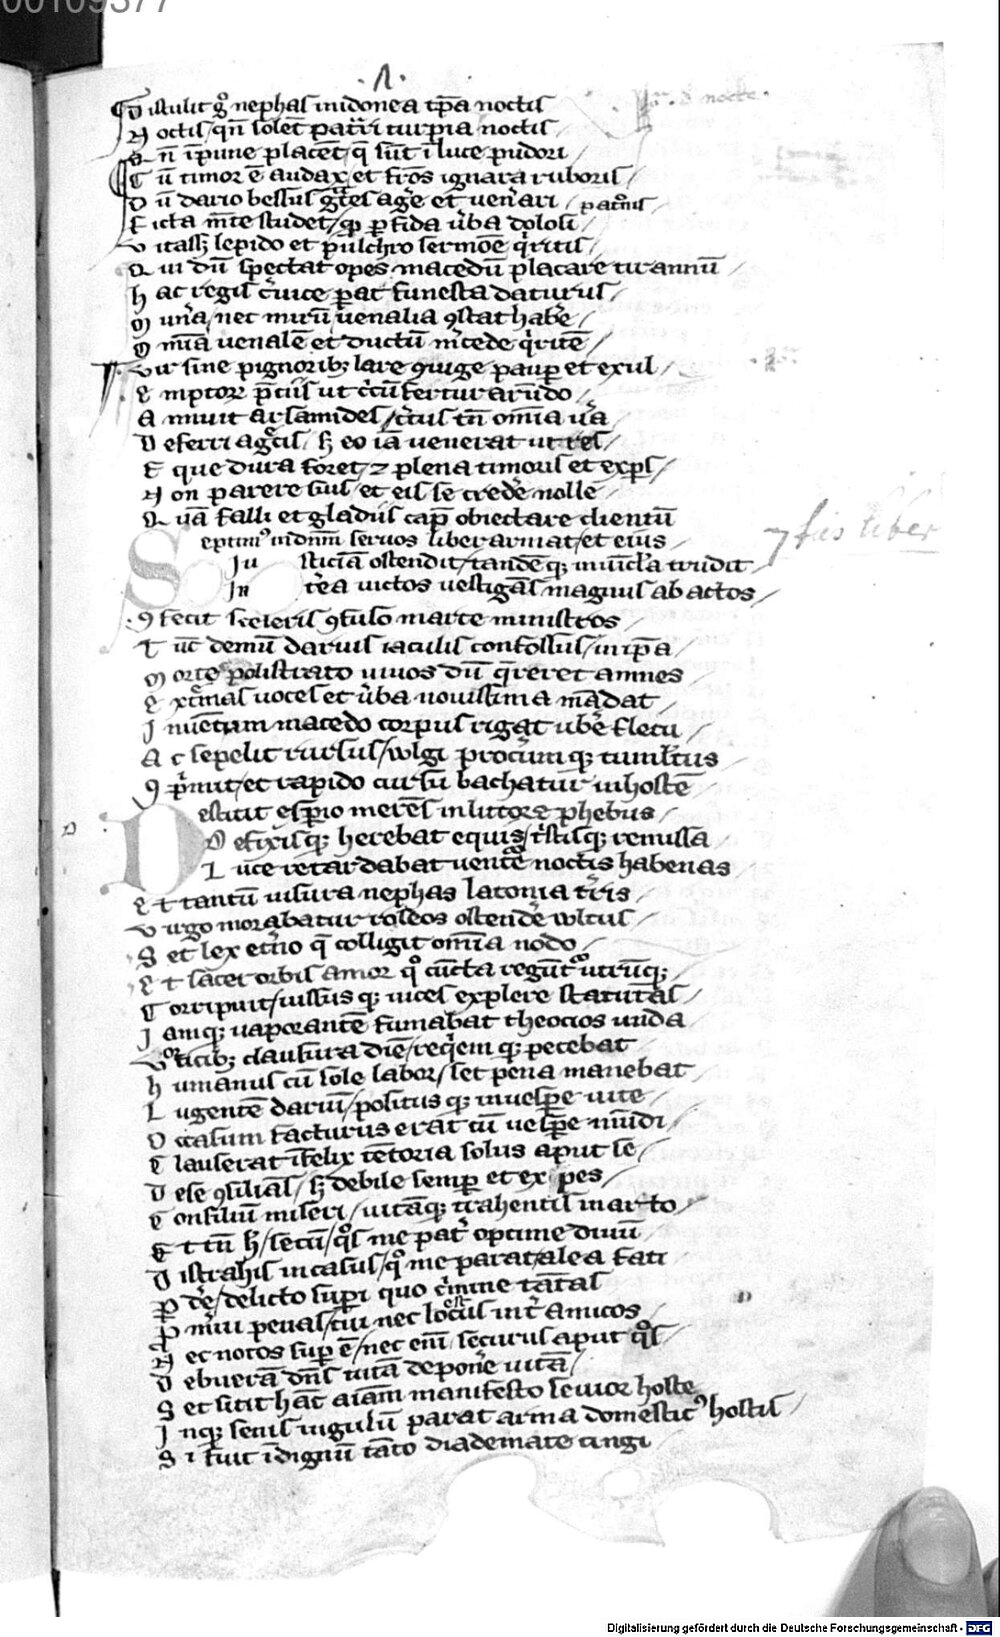 00109377
.Λ.
D istulit g° nephas inidonea tp̄a noctis
N octis/ qn̄ solet patrari turpia noctis
A n̄ īpune placent/ q̄ sūt ī luce pudori
C ū timor ē audax/ et frōs ignara ruboris/
D ū dario bessus grates agere et uenerari / patronis
F icta mēte studet/ qͥ perfida uerba dolosi/
V itassꝫ lepido et pulchro sermōe queritis/
Q ui dū spectat opes macedū placare tirannū /
h ac regis ceruice parat funesta daturus/
M unera/ nec mirū uenalia ꝯstat habere /
O mnia uenalē et ductū mercede queritē /
V ir sine pignoribꝫ lare ꝯiuge pauper et exul /
E mptorꝫ preciis ut circū fertur arundo/
A nnuit arsamides/ certus tn̄ omīa uera
D eferri a grecis/ sꝫ eo iā uenerat ut res/
E que dura foret/ ⁊ plena timoris et expers/
N on parere suis/ et eis se credere nolle
Q uā falli et gladiis caput obiectare clientū
S eptimꝰ in dominū seruos liber armat/ et eius
Iu sticiā ostendit/ tandēqꝫ trudit /
In terea uictos uestigās magnus ab actos /
ꝯ fecit sceleris ꝯfuso marte ministros /
T ūc demū darius iaculis confossus/ in ipsa /
M orte polistrato uiuos dū quereret amnes
E xtremas uoces et uerba nouissima mādat /
I nuentum macedo corpus rigat ubere fletu
A c sepelit rursus/ wlgi procerum qꝫ tumultus
ꝯ primit/ et rapido cursū bachatur in hostē
D estitit esperio merēs in litore phebus /
D efixis qꝫ herebat equis/ tristisqꝫ remissa /
L uce retardabat uentre noctis habenas
E t tantū uisura nephas latonia terris
V irgo morabatur roseos ostendere wltus /
S et lex eterno q̄ colligit omīa nodo /
E t sacer orbis amor q° cūcta regūtur utrūqꝫ /
C orripuit/ iussus qꝫ uices explere statutas/
I amqꝫ uaporantē fumabat theocios unda
V orticibꝫ clausura diē/ requiem qꝫ petebat
h umanus cū sole labor/ set pena manebat /
L ugentē dariū/ positus qꝫ in uespere uite /
O ccasum facturus erat cū uespere mūdi/
C lauserat īfelix tētoria solus aput se /
D ese ꝯsilians/ sꝫ debile semper et expes /
C onsiliū miseri/ uitāqꝫ trahentis in arto /
E t tū hꝫ/ secū/ quos me pater optime diuū
D istrahis in casus/ quo me parat/ alea fati
P erdere/ delicto superi quo crimine tātas
P romerui penas/ cui nec locus inter amicos
N ec notos super ē/ nec enī securus aput quos/
D ebuerā dn̄s uitā deponere uitā/
S et sitit hāc aīam manifesto seuior hoste
I nqꝫ senis iugulū parat arma domesticꝰ hostis /
S i fuit īdignū tāto diademate cingi
7ꝰ liber
Digitalisierung gefördert durch die Deutsche Forschungsgemeinschaft - DFG